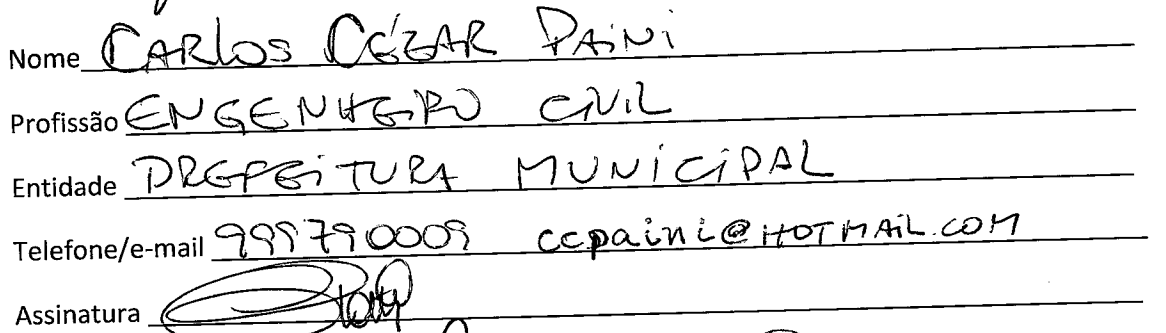 Nome CARLOS CÉZAR PAINI
Profissão ENGENHEIRO CIVIL
Entidade PREFEITURA MUNICIPAL
Telefone/e-mail 999790009 ccpaini@HOTMAIL.COM
Assinatura